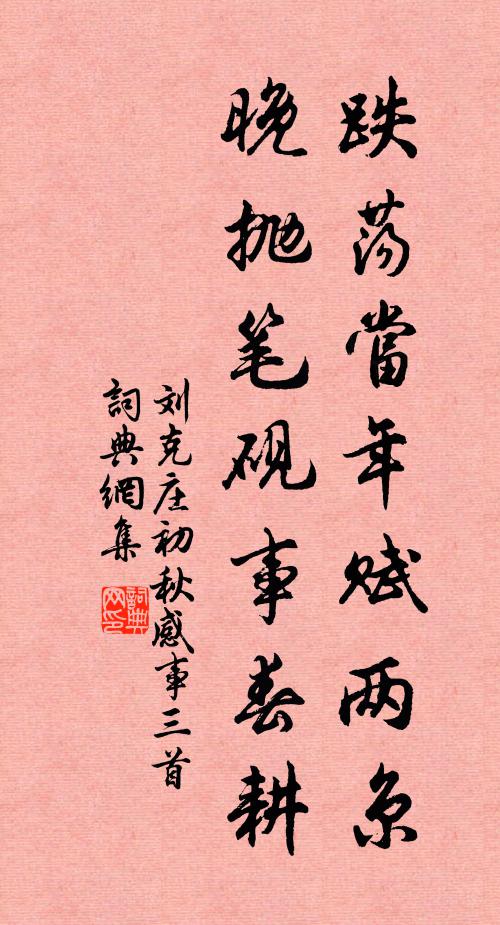 跌荡當年赋两京
晚抛笔砚事春耕
刘克庄初秋感事三首
詞典網集
詞典網印